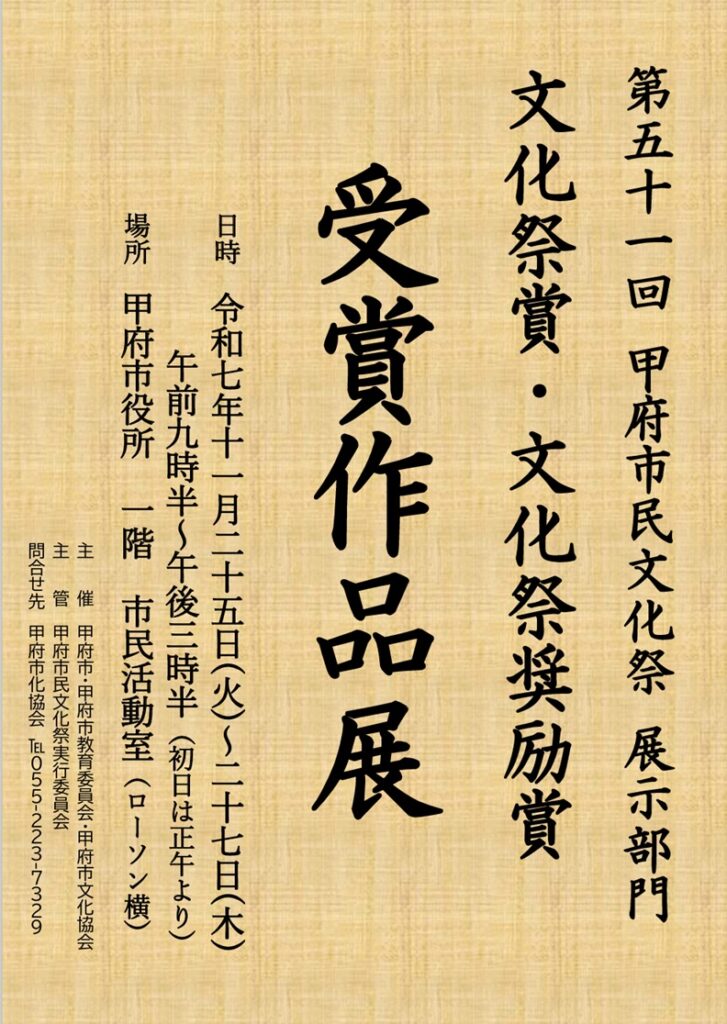 第五十一回 甲府市民文化祭 展示部門
文化祭賞・文化祭奨励賞
受賞作品展
日時 令和七年十一月二十五日(火)～二十七日(木)
午前九時半～午後三時半(初日は正午より)
場所 甲府市役所 一階 市民活動室(ローソン横)
主催 甲府市・甲府市教育委員会・甲府市文化協会
主管 甲府市民文化祭実行委員会
問合せ先 甲府市化協会 ℡055-223-7329